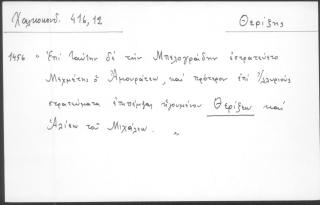 Χαλκοκονδ. 416,12
Θερίζης
1456 " Ἐπὶ ταύτην δὲ τὴν Μπελογράδην ἐστρατεύετο
Μεχμέτης ὁ Ἀμουράτεω, καὶ πρότερον ἐπὶ Ἰλλυριοὺς
στρατεύματα ἐπιπέμψας ἡγουμένου Θερίζεω καὶ
Ἀλίεω τοῦ Μιχάλεω. "